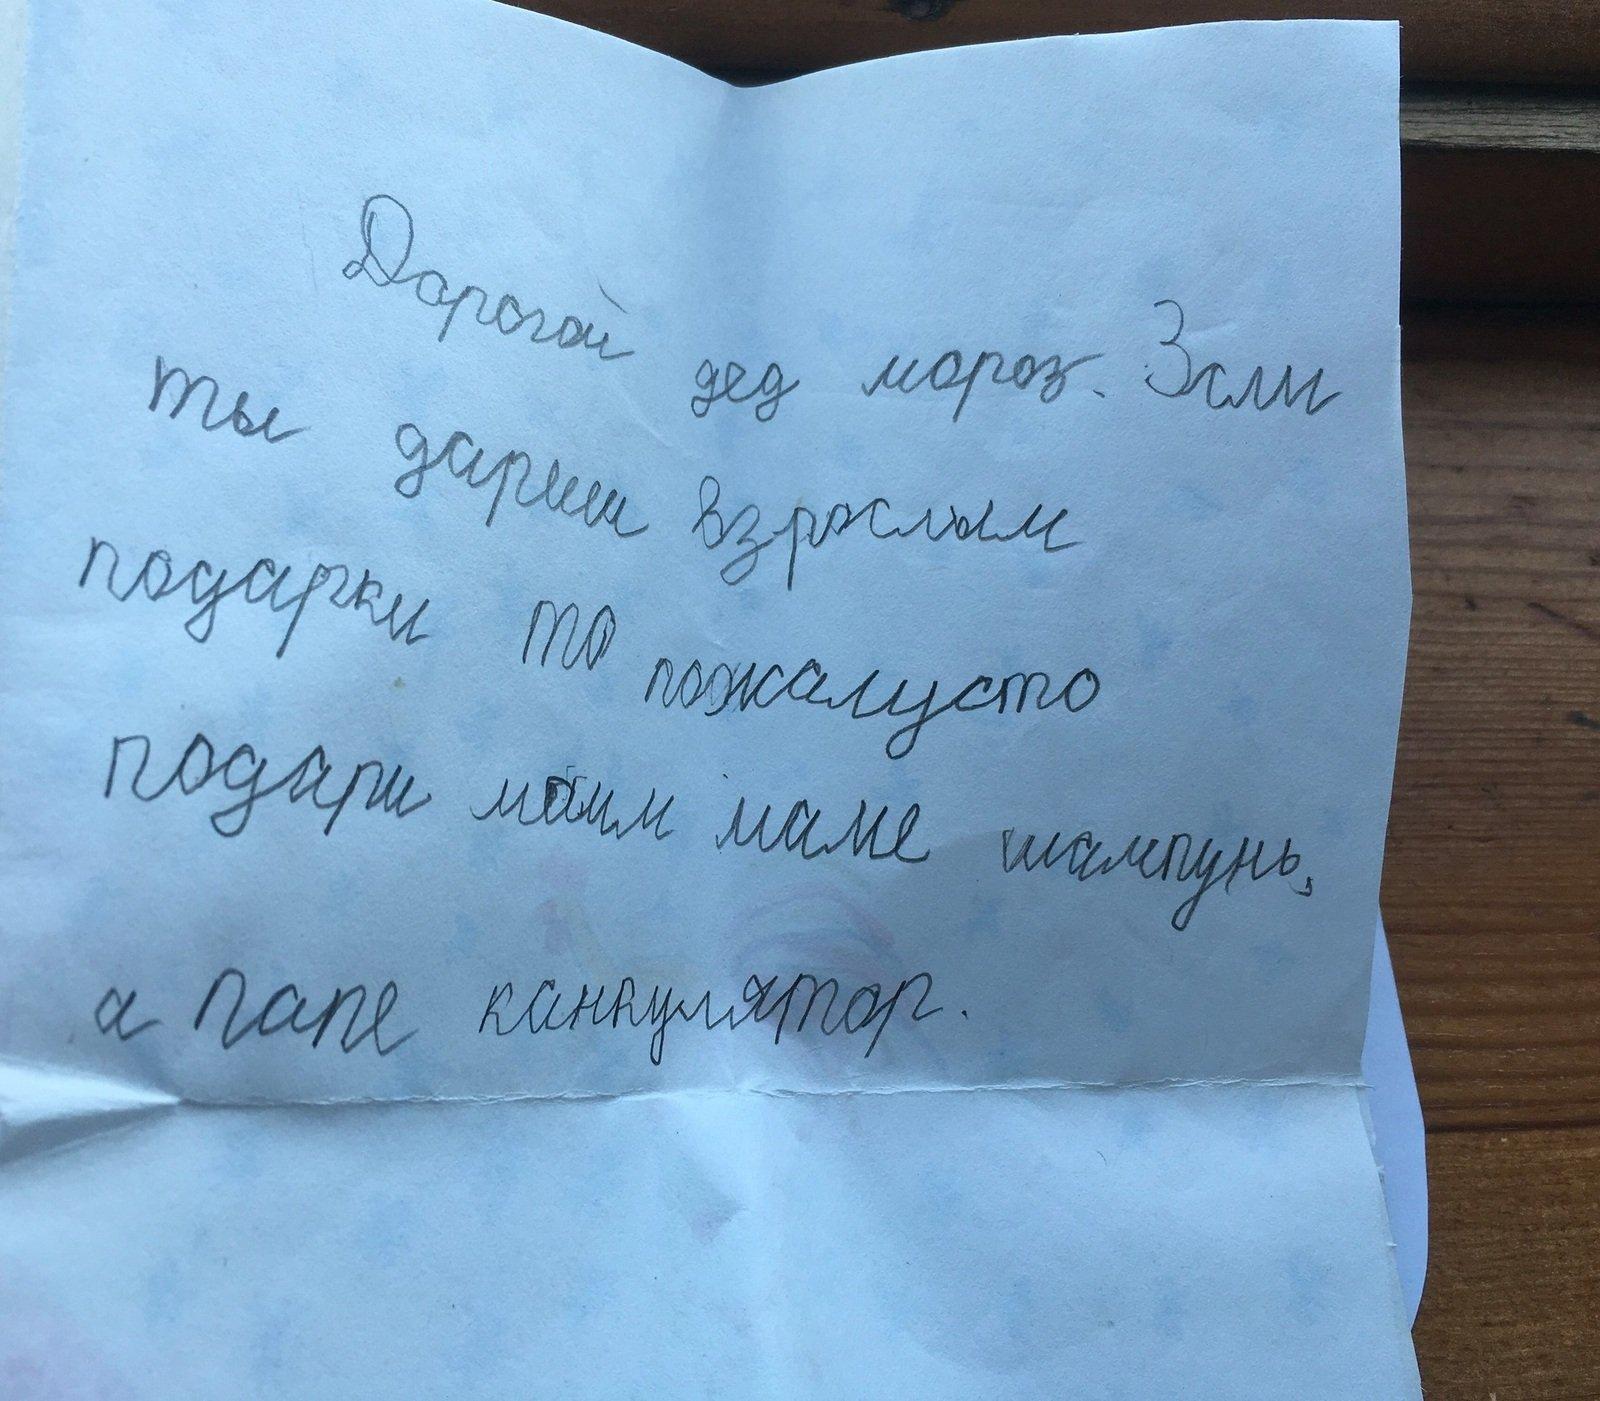 Дорогой дед мороз. Эсли
ты дариш взрослым
подарки то пожалусто
подари моим маме шампунь,
а папе канкулятор.